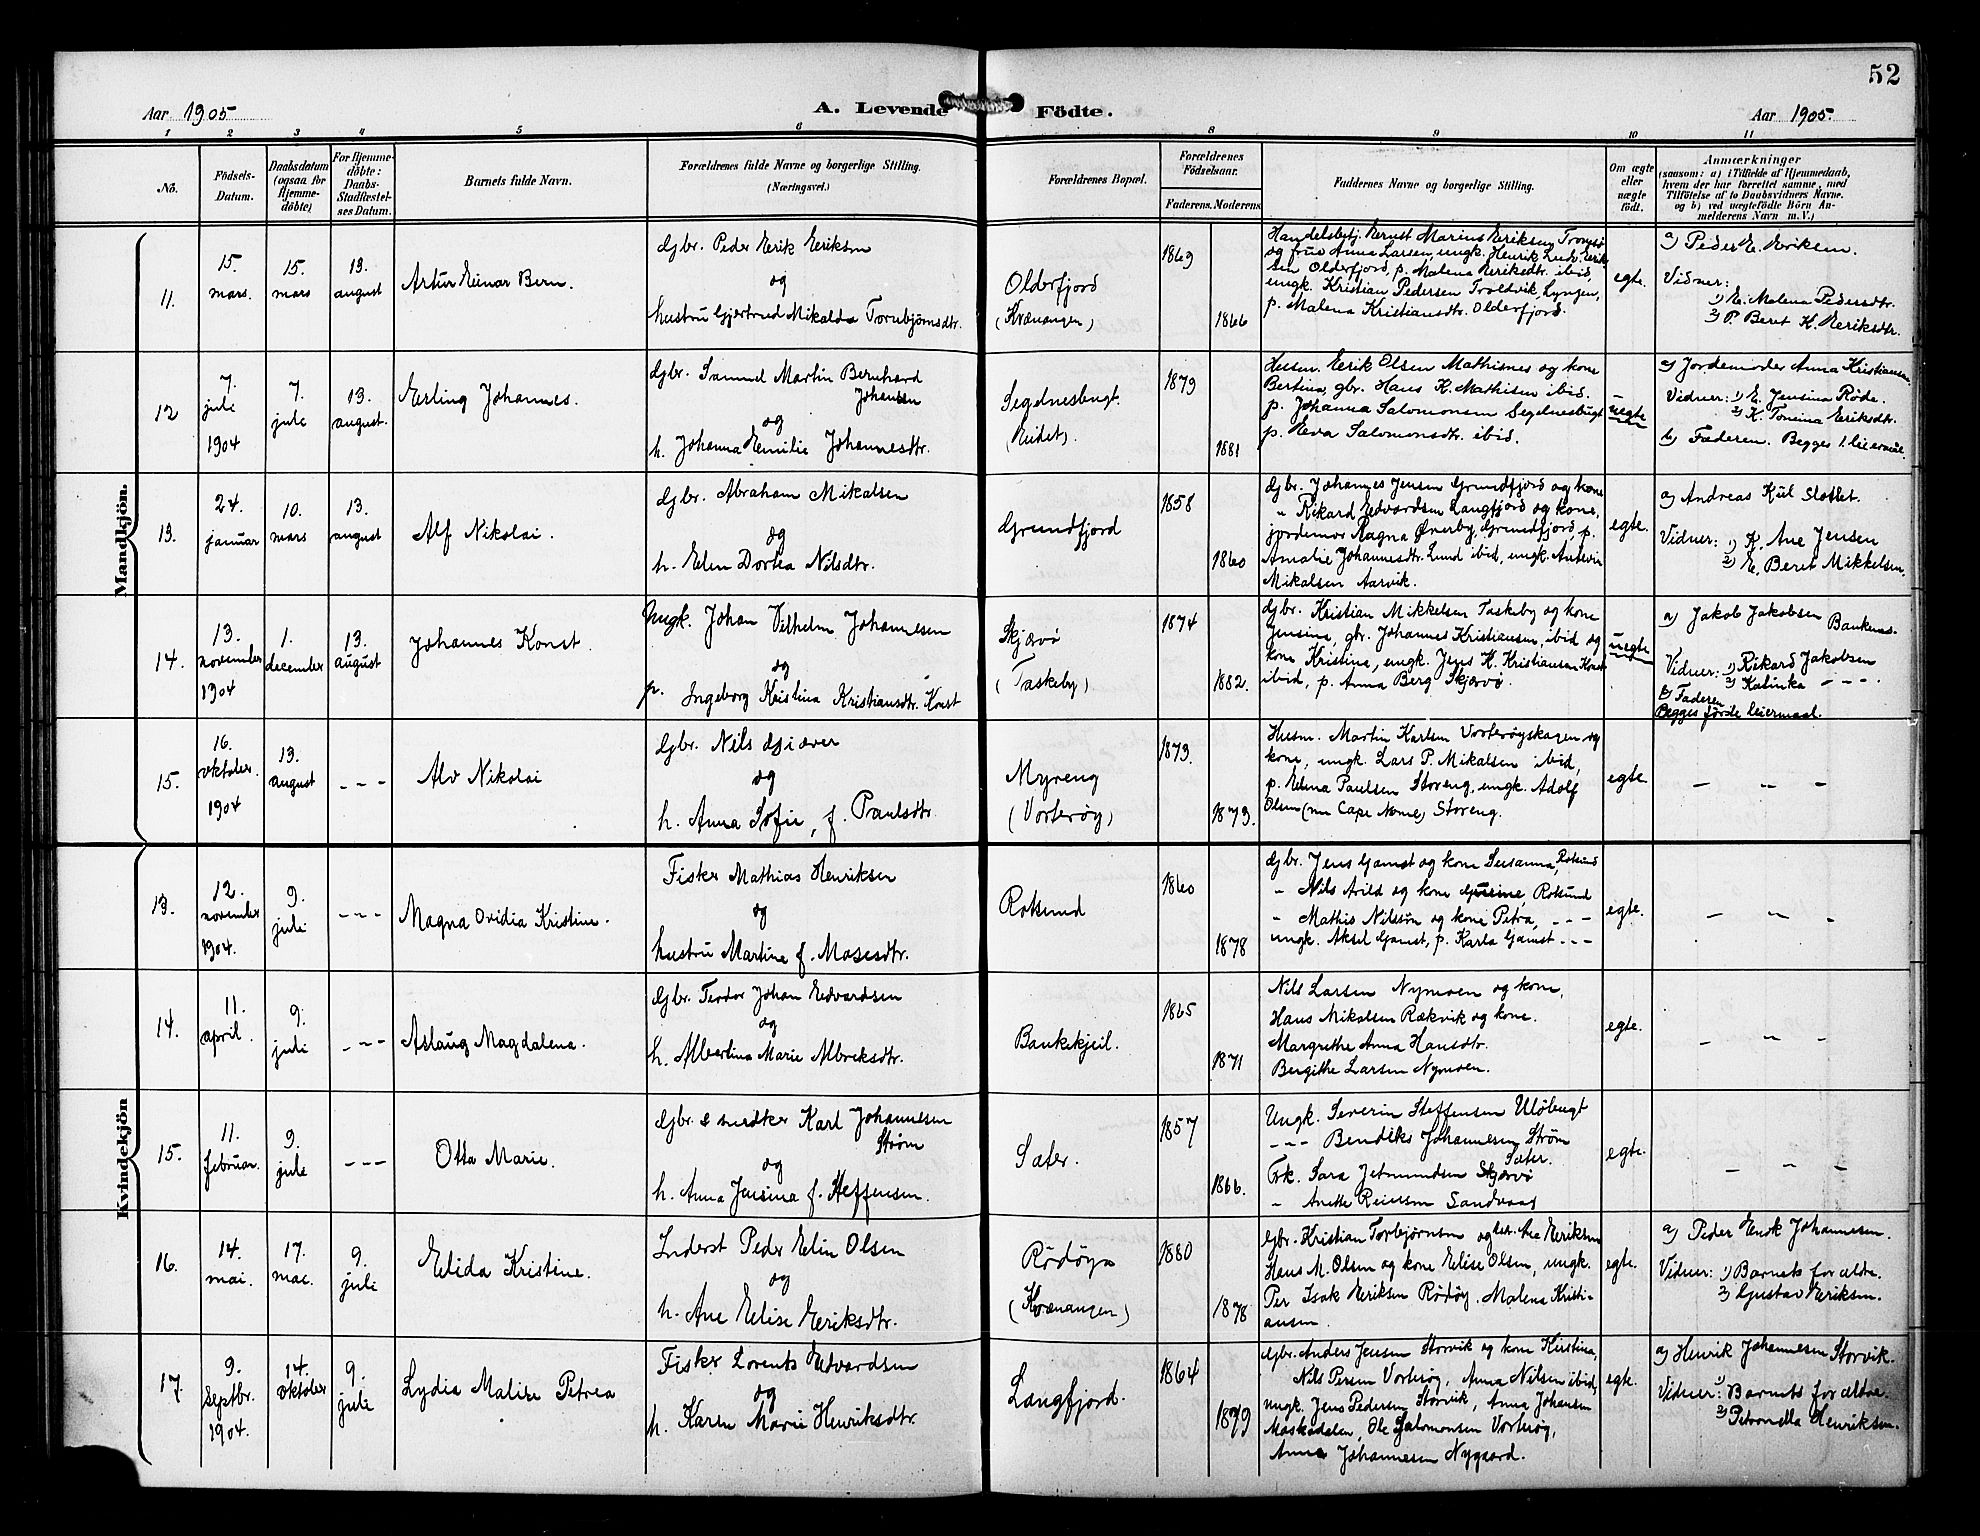 52
Aar 1905 A. Levende Födte. Aar 1905.
1 2 3 4 5 6 8 9 10 11
No.
Födsels-
Datum.
Daabsdatum
(ogsaa for
Hjemme-
döbte)
For Hjemme-
döbte:
Daabs-
Stadfæstel-
ses Datum.
Barnets fulde Navn.
Forældrenes fulde Navne og borgerlige Stilling.
(Næringsvei.)
Forældrenes Bopæl.
Forældrenes
Födselsaar.
Faderens. Moderens.
Faddernes Navne og borgerlige Stilling.
Om ægte
eller
uægte
födt.
Anmærkninger
(saasom: a) i Tilfælde af Hjemmedaab,
hvem der har forrettet samme, med
Tilföielse af to Daabsvidners Navne,
og b) ved uægtefödte Börn An-
melderens Navn m. V.)
Mandkjön.
11.
15.
mars.
15.
mars
13.
august
Artur Einar Bern.
Gbr. Peder Erik Eriksen
og
hustru Gjertrud Mikalda Tornbjörnsdtr.
Olderfjord
(Kvænangen)
1869
1866
Handelsbetj. Ernst Marius Eriksen Tromsø
og frue Anna Larsen, ungk. Henrik Ludv. Erik-
sen Olderfjord, p. Malena Eriksdtr. ibid,
ungk. Kristian Pedersen Troldvik, Lyngen,
p. Malena Kristiansdtr. Olderfjord.
egte.
a) Peder E. Eriksen.
Vidner:
1) E. Malena Pedersdtr.
2) P. Beret K. Eriksdtr.
12
7.
juli
1904
7.
juli
13.
august.
Erling Johannes.
Gbr. Samuel Martin Bernhard
Johansen
og
h. Johanna Emilie Johannesdtr.
Segelnesbugt.
(Eidet).
1879
1881
Husm. Erik Olsen Mathisnes og kone
Bertina, gbr. Hans K. Mathisen ibid.
p. Johanna Salomonsen Segelnesbugt
p. Eva Salomonsdtr. ibid.
uegte
a) Jordemoder Anna Kristiansen
Vidner: 1) E. Jensina Røde.
2) K. Tomina Eriksdtr.
b) Faderen. Begges 1. leiermaal.
13.
24.
januar
10.
mars
13.
august
Alf Nikolai.
Gbr. Abraham Mikalsen
og
h. Elen Dortea Nilsdtr.
Grundfjord
1858
1860
Gbr. Johannes Jensen Grundfjord og kone
" Rikard Edvardsen Langfjord og kone,
jordemor Ragna Øverby, Grundfjord, p.
Amalie Johannesdtr. Lund ibid, ungk.
Mikalsen Aarvik.
egte.
a) Andreas Kiil Slottet.
Vidner: 1) K. Ane Jensen
2) E. Beret Mikkelsen.
14.
13.
november
1904
1.
december
13.
august
Johannes Konst.
Ungk. Johan Vilhelm Johannesen
og
p. Ingeborg Kristina Kristiansdtr. Konst
Skjærvö
(Taskeby)
1874
1882.
Gbr. Kristian Mikkelsen Taskeby og kone
Jensina, gbr. Johannes Kristiansen, ibid og
kone Kristina, ungk. Jens K. Kristiansen Konst
ibid, p. Anna Berg Skjærvö.
uegte
a) Jakob Jakobsen Bankenes.
Vidner: 1) Rikard Jakobsen
2) Kalinka - - -
b) Faderen
Begges förste leiermaal.
15.
16.
oktober.
1904
13.
august
- - -
Alv Nikolai
Gbr. Nils Giæver
og
h. Anna Sofie, f. Paulsdtr.
Myreng
(Vorterøy)
1873.
1873.
Husm. Martin Karlsen Vorterøyskagen og
kone, ungk. Lars P. Mikalsen ibid,
p. Edina Paulsen Storeng, ungk. Adolf
Olsen (nu Cape Nome) Storeng.
egte.
- " -
Kvindekjön
13.
12.
november
1904.
9.
juli
- - -
Magna Ovidia Kristine.
Fisker Mathias Henriksen
og
hustru Martine f. Mosesdtr.
Rotsund
1860
1878
Gbr. Jens Gamst og kone Susanna, Rotsund
" Nils Arild og kone Gurine Rotsund
" Mathis Nilssön og kone Petra, - - -
ungk. Aksel Gamst, p. Karla Gamst - - -
egte.
- " -
14.
11.
april.
9.
juli
- - -
Aslaug Magdalena.
Gbr. Teodor Johan Edvardsen
og
h. Albertina Marie Albreksdtr.
Bankekjeil.
1865
1871
Nils Larsen Nymoen og kone,
Hans Mikalsen Rækvik og kone.
Margrethe Anna Hansdtr.
Bergithe Larsen Nymoen.
egte.
- " -
15.
11.
februar.
9.
juli
- - -
Otta Marie.
Gbr. & snedker Karl Johannesen
Strøm
og
h. Anna Jensina f. Steffensen.
Sæter.
1857
1866.
Ungk. Severin Steffensen Uløbugt
- - - Bendiks Johannesen Strøm
Sæter.
Frk. Sara Jetmundsen Skjærvö
" Anette Reiersen Sandvaag
egte.
- " -
16.
14.
mai.
17.
mai.
9.
juli
Elida Kristine.
Inderst Peder Elin Olsen
og
h. Ane Elise Eriksdtr.
Rödöyn
(Kvænangen)
1880
1878
Gbr. Kristian Torbjørnsen og hstr. Ane Eriksen
Hans M. Olsen og kone Elise Olsen, ungk.
Per Isak Eriksen Rödöy. Malena Kristi-
ansen.
egte.
a) Peder Enok Johannesen.
Vidner: 1) Barnets forældre.
2) Gustav Eriksen.
17.
9.
Septbr.
1904.
14.
oktober
9.
juli
Lydia Malise Petrea
Fisker Lorents Edvardsen
og
h. Karen Marie Henriksdtr.
Langfjord.
1864
1879
Gbr. Anders Jensen Storvik og kone Kirstina,
Nils Persen Vorterøy, Anna Nilsen ibid,
ungk. Jens Pedersen Storvik, Anna Johansen
Maskedalen, Ole Salomonsen Vorterøy,
Anna Johannesen Nygaard.
egte.
a) Henrik Johannesen Storvik.
Vidner: 1) Barnets forældre.
2) Petronella Henriksen.